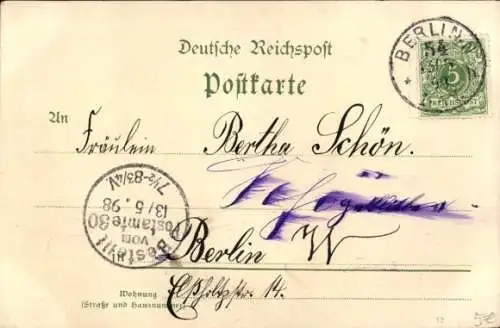 Deutsche Reichspost
Postkarte
BERLIN N
54
5
REICHSPOST
An
Fräulein Bertha Schön.
Bestellt
vom
Postamte 80
13/5.98
7½-8¾V.
Berlin W
Wohnung
(Straße und Hausnummer)
Elßholzstr. 14.